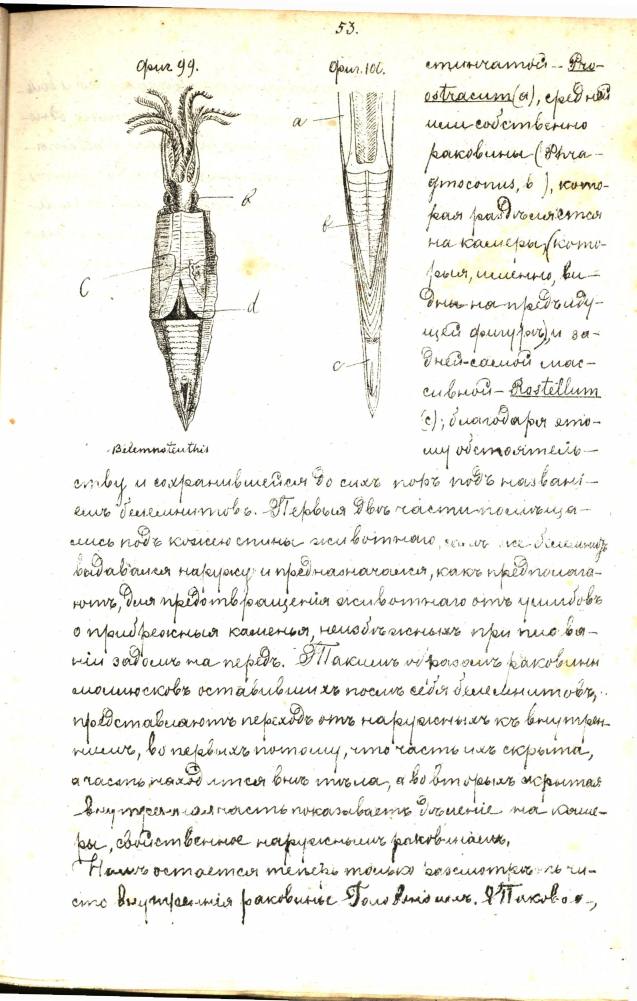 53.
Фиг 99.
Фиг. 100.
a
b
b
C
d
c
Belemnoteuthis
стинчатой - Pro-
ostracum (a), средней
или собственно
раковины (Phra-
gmoconus, b), кото-
рая раздѣляется
на камеры (кото-
рыя, именно, ви-
дны на предъиду-
щей фигурѣ), и за-
дней-самой мас-
сивной - Rostellum
(c); благодаря это-
му обстоятель-
ству и сохранившейся до сихъ поръ подъ названi-
емъ белемнитовъ. Первыя двѣ части помѣща-
лись подъ кожею спины животнаго, же белемнитъ
выдавался наружу и предназначался, какъ предполага-
ютъ, для предотвращенія животнаго отъ ушибовъ
о прибрежныя каменья, неизбѣжныхъ при плава-
ніи задомъ на передъ. Такимъ образомъ раковины
моллюсковъ оставившихъ послѣ себя белемнитовъ,
представляютъ переходъ отъ наружныхъ къ внутрен-
нимъ, во первыхъ потому, что часть ихъ скрыта,
а часть находится внѣ тѣла, а во вторыхъ скрытая
внутренняя часть показываетъ дѣленіе на каме-
ры, свойственное наружнымъ раковинамъ.
Намъ остается теперь только разсмотрѣть чи-
сто внутреннія раковины Головоногихъ.